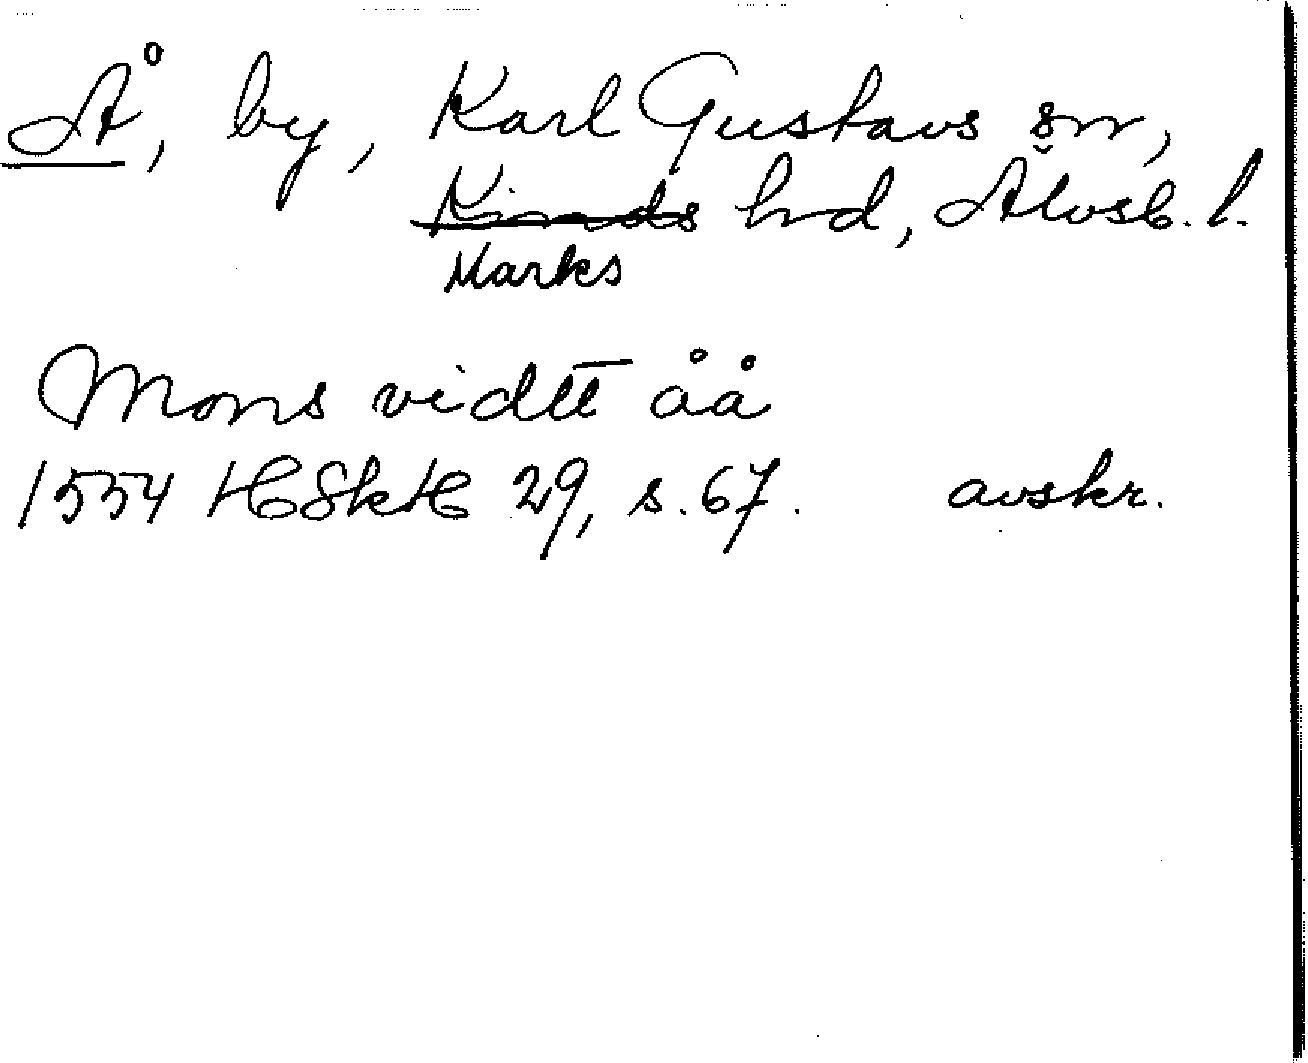 Å, by, Karl Gustavs sn,
Kinds hrd, Älvsb. l.
Marks
Mons vidtt åå
1554 HSkH 29, s. 67. avskr.